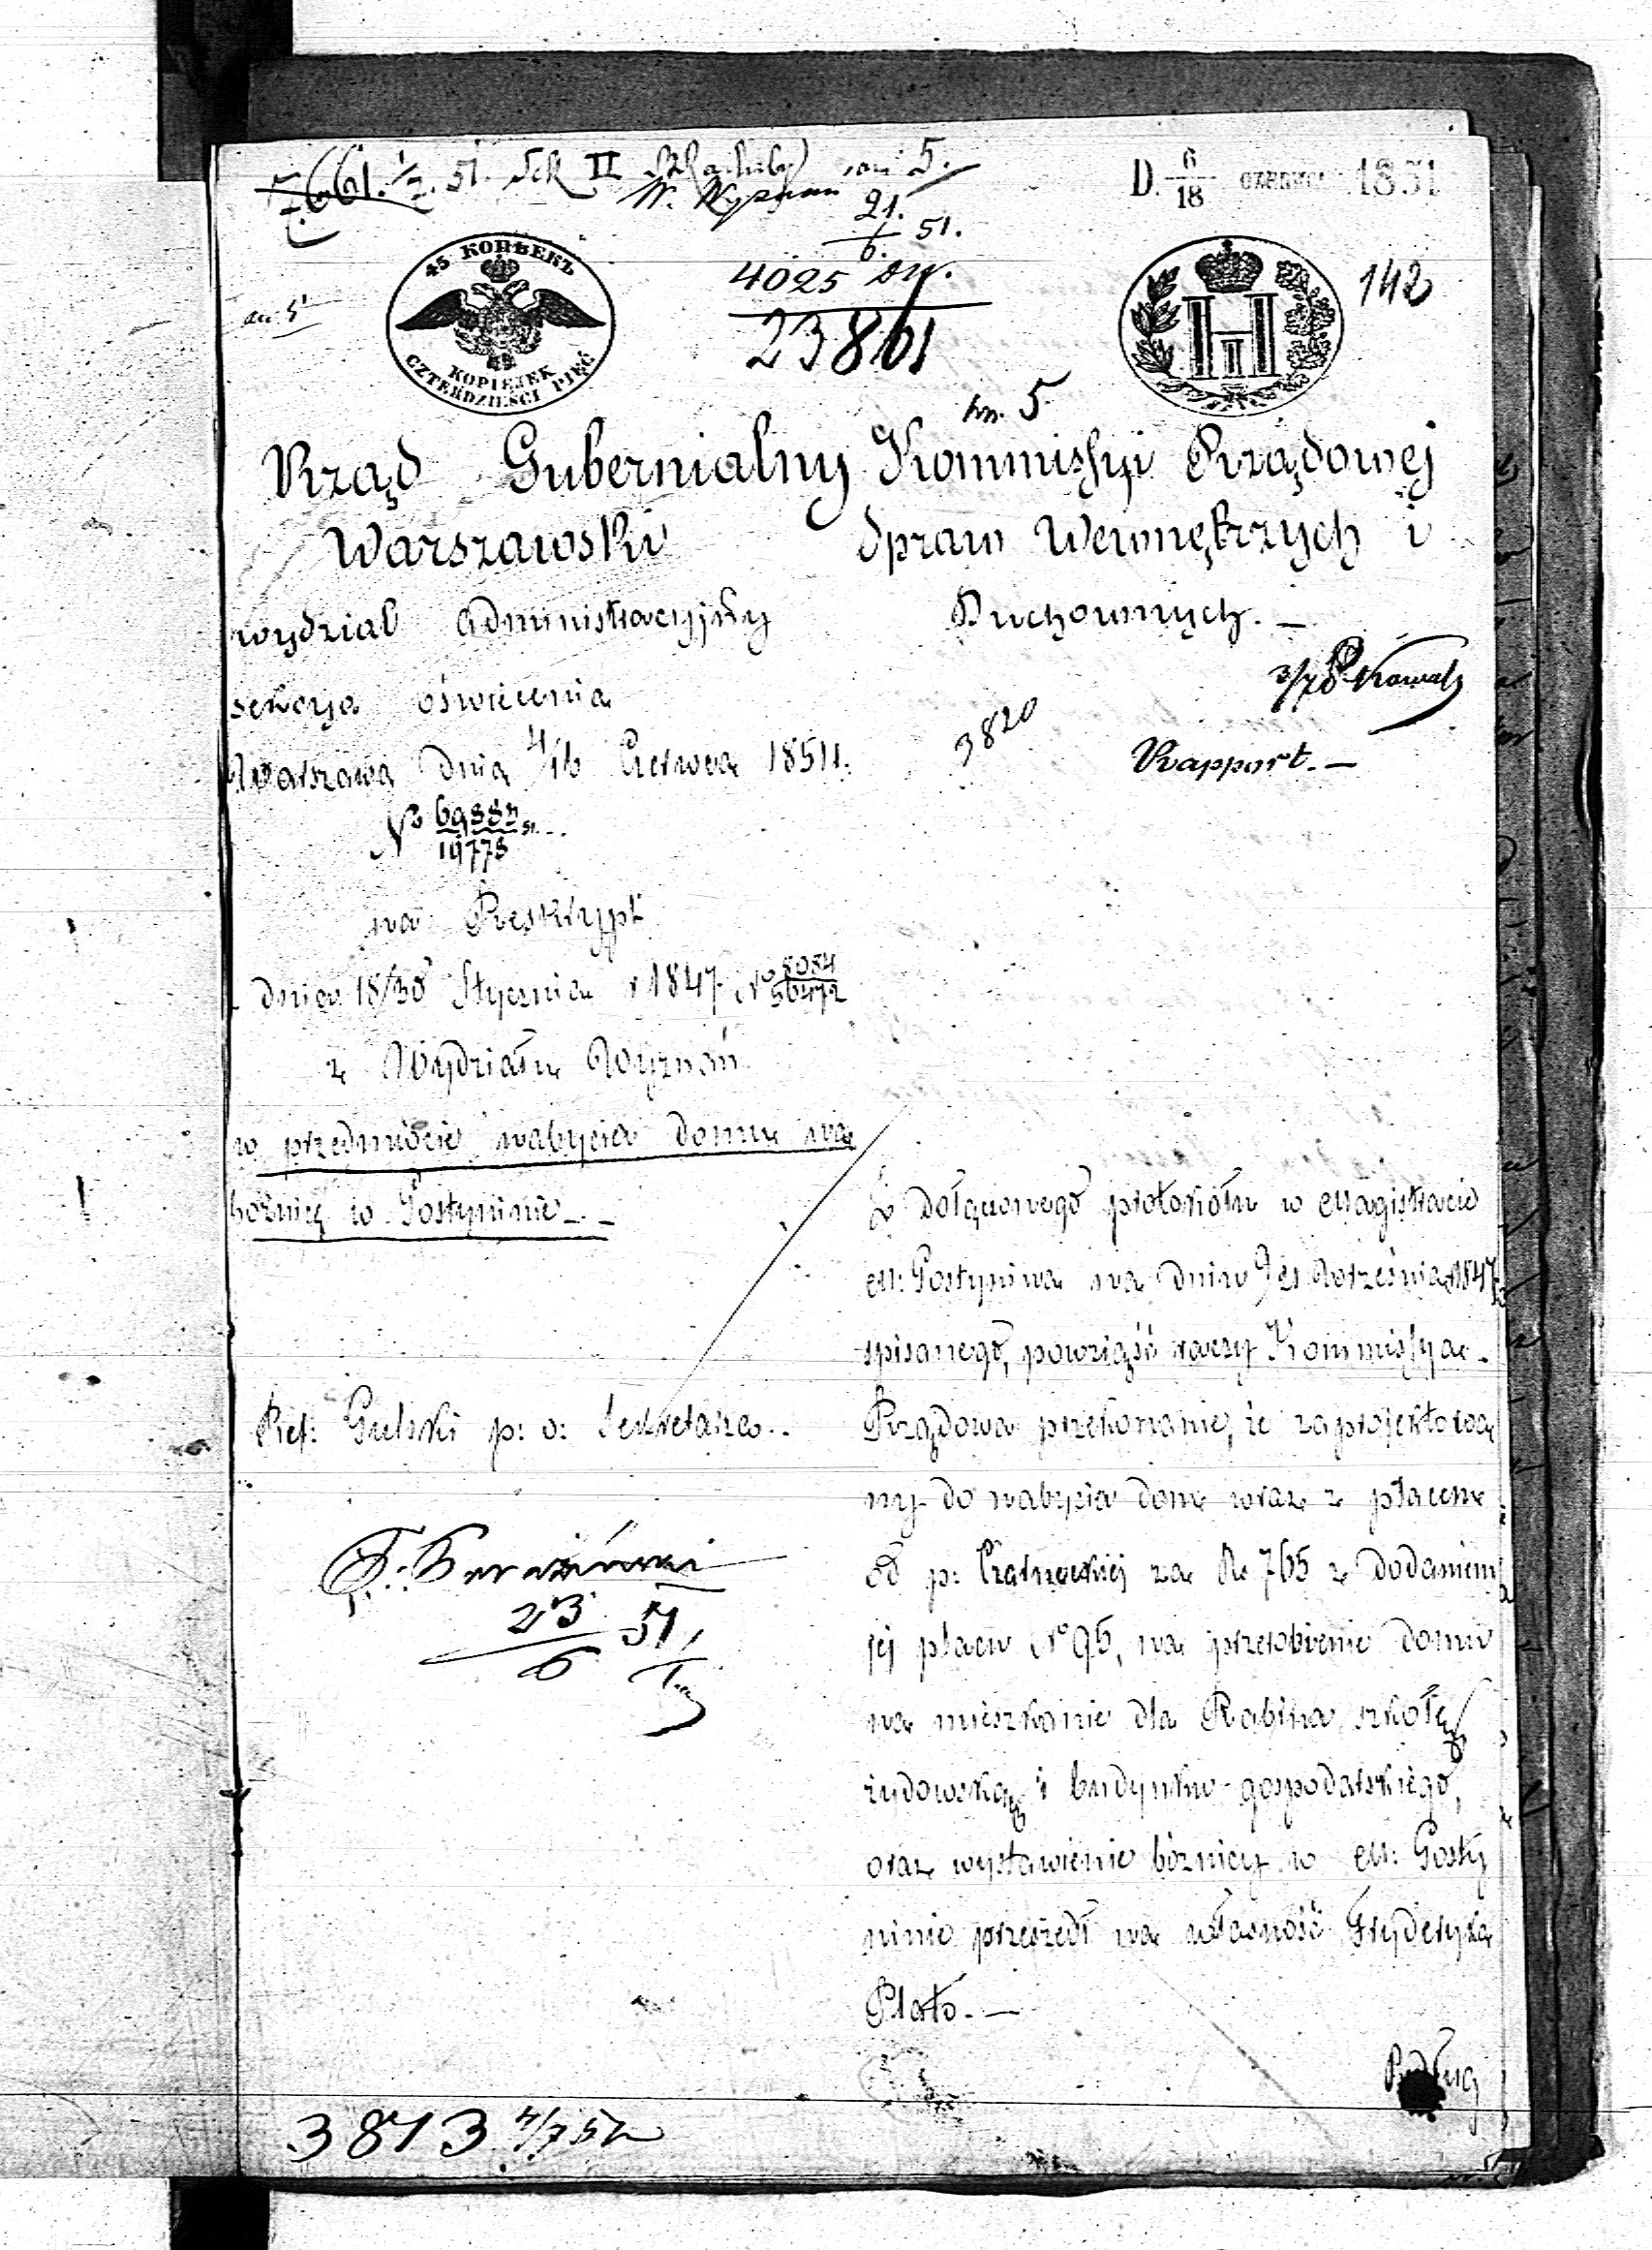 7661. 1/7. 51. Sek II
W. Wyznań
an 5.
21/6. 51.
D. 6/18 CZERWCA 1851
45 КОПѢЕКЪ
KOPIEJEK
CZTERDZIEŚCI PIĘĆ
4025
23861
142
an 5
5
Rząd Gubernialny
Warszawski
wydział Administracyjny
sekcya oświecenia
Warszawa dnia 4/16 Czerwca 1851 r.
No 69887/19775
na Reskrypt
z dnia 18/30 Stycznia r 1847 No 8084/56472
z Wydziału Wyznań
w przedmiocie nabycia domu na
bóźnicę w Gostyninie._
Ref: Gulski p: o: Sekretarza..
23/6 51
Kommissyi Rządowej
Spraw Wewnętrzych i
Duchownych._
3820
Rapport._
Z dołączonego protokółu w Magistracie
M: Gostynina na dniu 9/21 Września 1847
spisanego, powziąść raczy Kommissya
Rządowa przekonanie, że zaprojektowa
ny do nabycia dom wraz z placem
od p: Czarneckiej za Rs 765 z dodaniem
jej placu No 96, na przerobienie domu
na mieszkanie dla Rabina, szkołę
żydowską i budynku gospodarskiego,
oraz wystawienie bóżnicy w M: Gosty
ninie przeszedł na własność Fryderyka
Plato._
Podług
3873 4/7 51